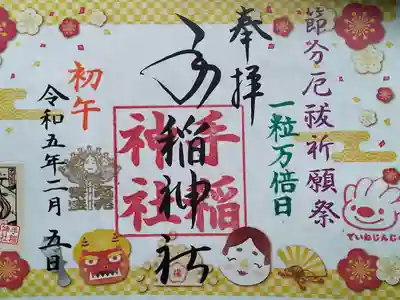 節分厄祓祈願祭
一粒万倍日
奉拝
手稲神社
手稲
神社
初午
令和五年二月五日
ていねじんじゃ